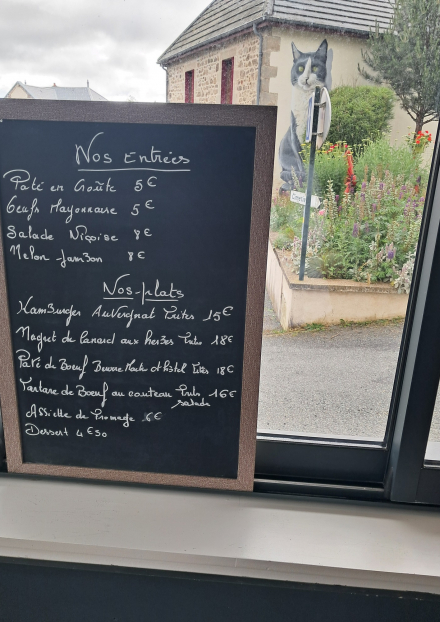 Nos Entrées
Paté en Croûte 5€
Oeufs Mayonnaise 5€
Salade Niçoise 8€
Melon Jambon 8€
Nos plats
Hamburger Auvergnat Frites 15€
Magret de Canard aux herbes Frites 18€
Pavé de Boeuf Beurre Maitre d'hôtel Frites 18€
Tartare de Boeuf au couteau Frites 16€
salade
Assiette de Fromage 6€
Dessert 4€50